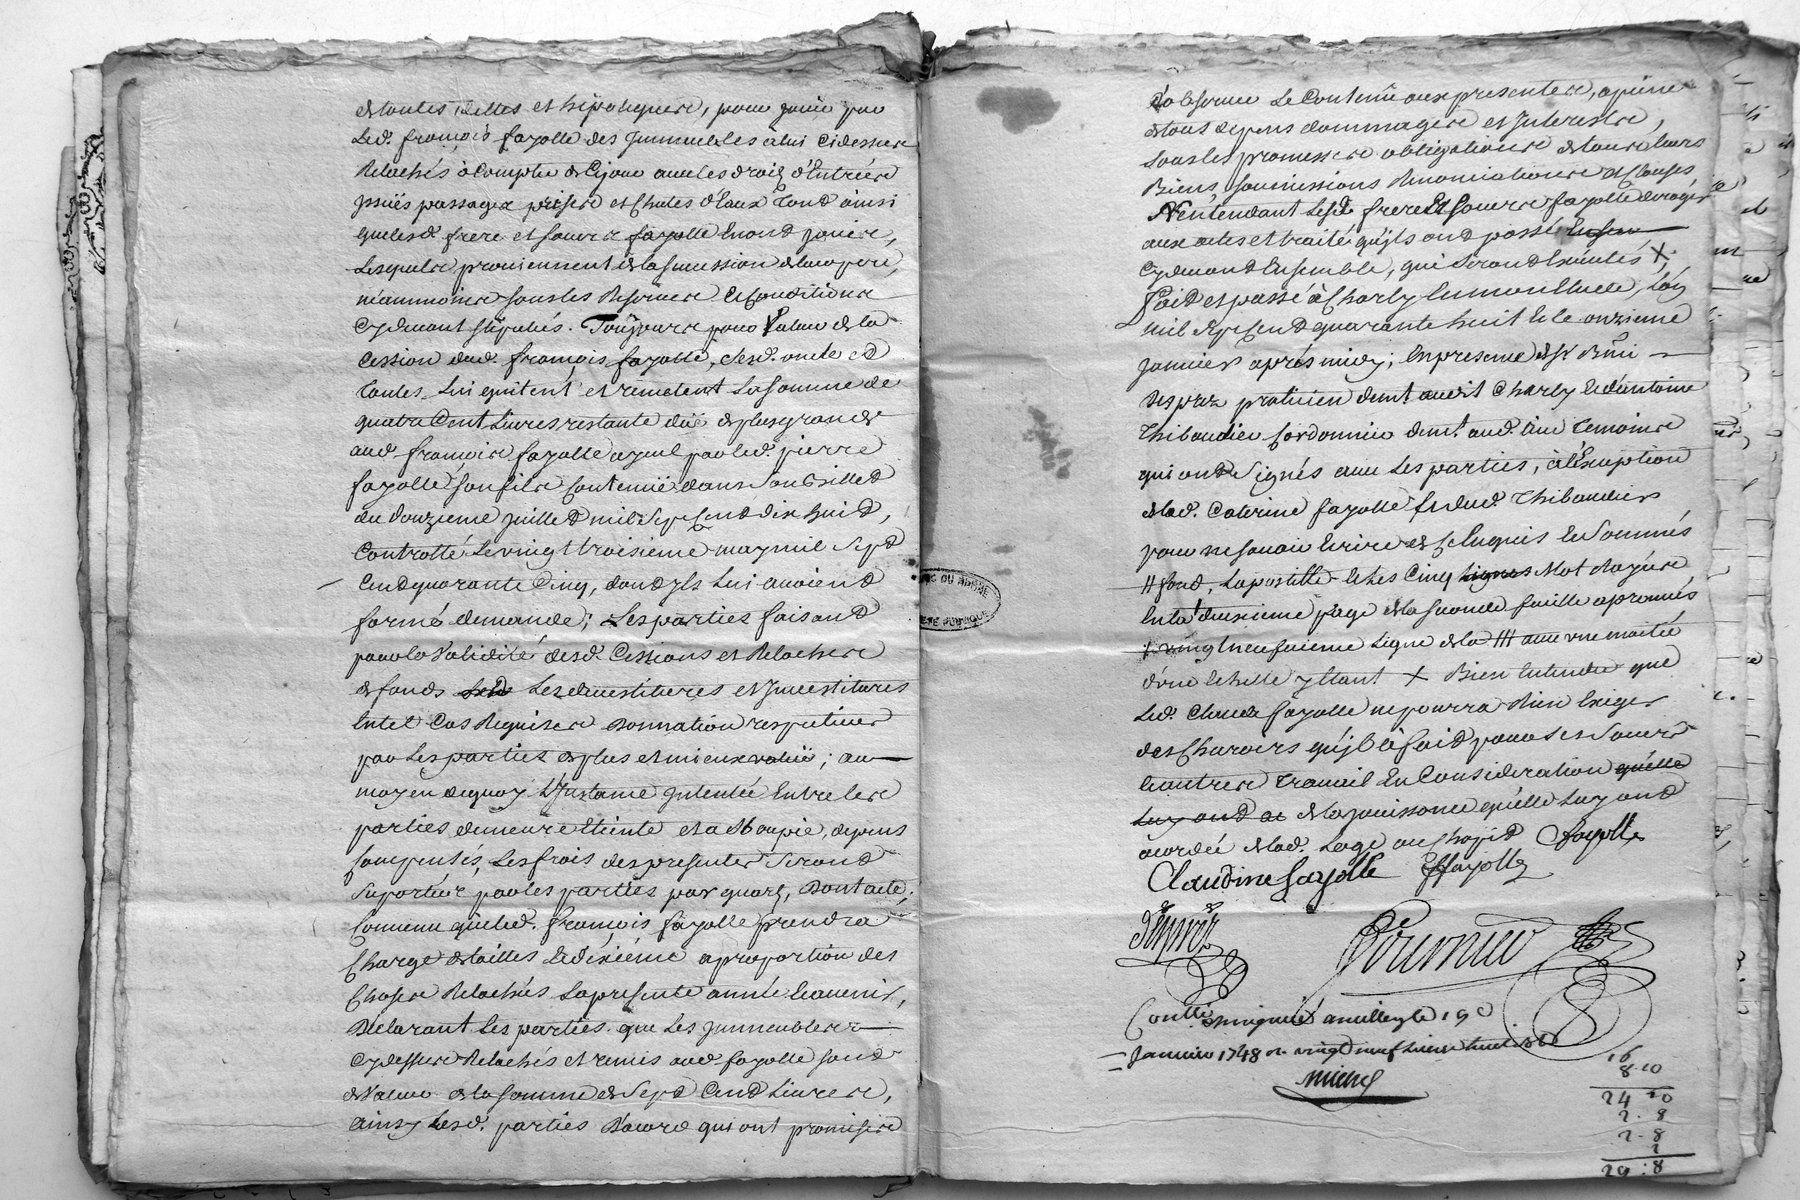 de toutes dettes et hipotequere, pour jouir par
led. françois fayolle des Jmmeubles à lui cidessure
Relachés à compter de cejour avec les droits d'Entrére
jssuës passagex prisere et chutes d'Eaux tout ainsi
que lesd. frere et soeur fayolle Enont jouire,
Lesquelre proviennent de la succession de leur pere,
néammoinre sous les Reservere et conditionre
cydevant stipulés. Toujourre pour Valeur de la
Cession dud. françois fayolle, lesd. oncle et
tantes Lui quitent et remetent La somme de
quatre Cent Livres restante düe de plus grande
aud. françoire fayolle ayeul par led. pierre
fayolle son filre contenüe dans
du douzieme juillet mil sept cent dix huit,
Controllé Le vingt troisieme may mil sept
Cent quarante Cinq, dont jls Lui avoient
formé demande; Les parties faisant
pour la validité desd. Cessions et Relachere
de fonds Les devestitures et Jnvestitures
En tel Cas Requisere Donnation respective
par Les parties de plus et mieux value; au
moyen dequoy L'Jnstance jntentée Entre lere
parties demeure Eteinte et assoupie, depens
Compensés, Les frais des presentes seront
suportere par les parties par quart, Dont acte;
Convenu que led. françois fayolle prendra
Charge de tailles Le dixiéme a proportion des
chosere Relachés La presente année Et avenir,
Declarant Les parties que Les jmmeublere
cydessure Relachés et remis aud. fayolle sont
de Valeur de la somme de sept Cent Livrere,
Ainsy Lesd. parties D'acord qui ont promisere
d'observer Le Contenu aux presentere, apeine
de tous depens dommagere et Jnterestre,
sous les promessere obligationre de toure leurs
Biens, soumissions Renonciationre et Clauses,
N'entendant Lesd. frere Et soeurre fayolle deroger
aux actes et traité qu'jls ont passé
cydevant Ensemble, qui seront Executés X;
Fait et passé à Charly En mon Etude, L'an
mil sept cent quarante huit Et le onzieme
janvier aprés midy; En presence de Sr Remi
Desprez praticien demt. audit Charly Et d'antoine
Thibaudier Cordonnier demt. aud. lieu temoinre
qui ont Signés avec Les parties, à l'Exception
de lad. Caterine fayolle fe. dud. Thibaudier
pour ne savoir Ecrire de ce Enquis Et sommés
// fond, La postille Et Les Cinq lignes Mot Rayére
En la deuxieme page de la seconde feuille aprouvés
vingt neufvieme Ligne de la /// avec une moitié
d'une Echelle y Etant X Bien Entendu que
Led. Claude fayolle ne pourra Rien Exiger
des Charoirs qu'jl à fait pour ses soeurs
Et autrere travail En Consideration quelle
Luy ont de de la jouissance qu'elle Luy ont
acordée de lad. Loge ou chapit Fayolle
Claudine fayolle Ffayolle
Desprez
Contllé. à millery le 19e
Janvier 1748 R. vingt neuf livres huit sols
Michel
16
8-10
24 10
2-8
2-8
29:8